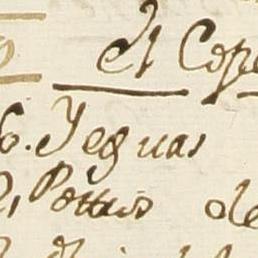 el Cope
6. Yeguas
2, Pottros de